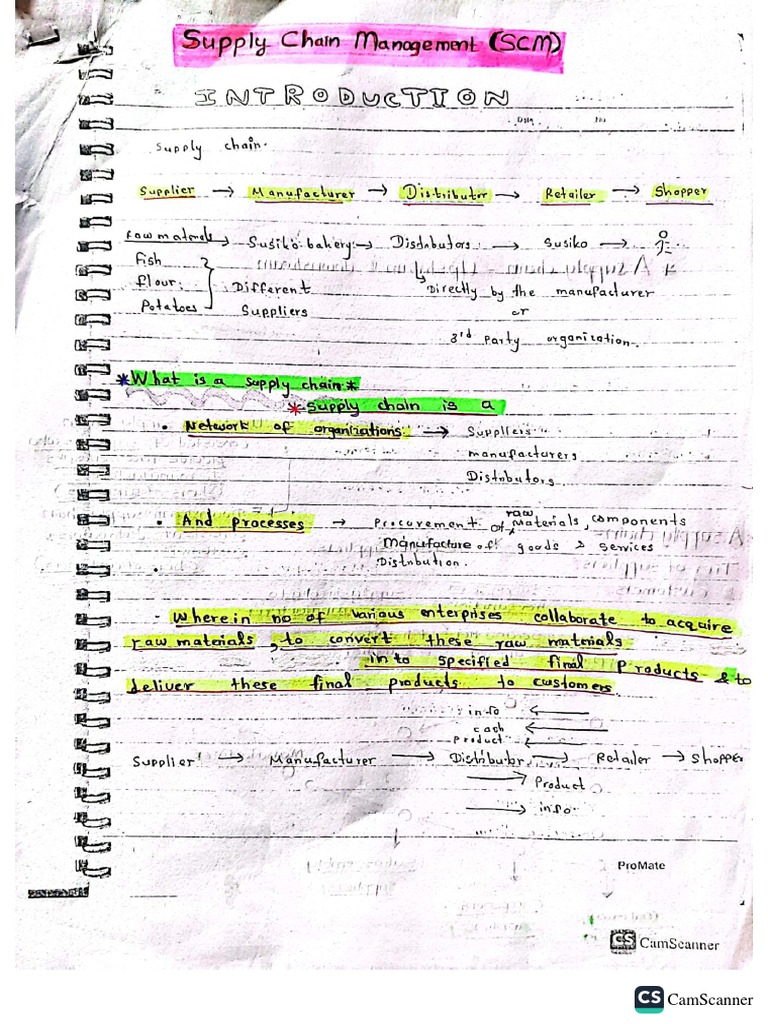 Supply Chain Management (SCM)
INTRODUCTION
Supply chain.
Supplier → Manufacturer → Distributor → Retailer → Shopper
Raw materials → Susiko bakery → Distributors → Susiko →
Fish
flour.
Potatoes
Different
Suppliers
Directly by the manufacturer
or
3rd Party organization.
*What is a supply chain*
* Supply chain is a
• Network of organizations → Suppliers
manufacturers
Distributors
• And processes → Procurement of raw materials, components
Manufacture of goods & services
Distribution.
Where in no of various enterprises collaborate to acquire
raw materials, to convert these raw materials
in to specified final products & to
deliver these final products to customers.
info ←
cash ←
product ←
Supplier → Manufacturer → Distributor → Retailer → Shopper
→ Product
→ info.
ProMate
CS CamScanner
CS CamScanner